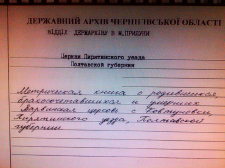 ДЕРЖАВНИЙ АРХІВ ЧЕРНІГІВСЬКОЇ ОБЛАСТІ
ВІДДІЛ ДЕРЖАРХІВУ В М.ПРИЛУКИ
Церкви Пирятинского уезда
Полтавской губернии
Метрическая книга о родившихся,
бракосочетавшихся и умерших
церкви с.
Пирятинского уезда, Полтавской
губернии.